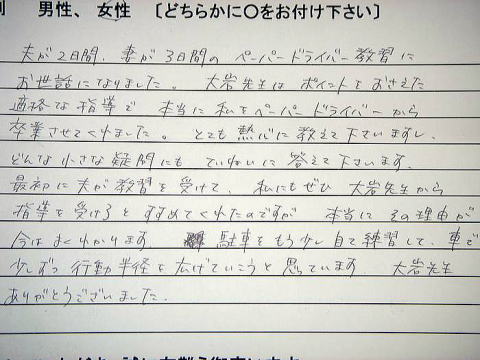 男性、 女性 〔どちらかに〇をお付け下さい〕
夫が2日間、妻が3日間の ペーパードライバー教習に
お世話になりました。 大岩先生は ポイントをおさえた
適格な指導で 本当に私をペーパードライバーから
卒業させてくれました。 とても熱心に教えて下さいますし、
どんな小さな疑問にも ていねいに 答えて下さいます。
最初に夫が教習を受けて、私にもぜひ 大岩先生から
指導を受けろとすすめてくれたのですが 本当に その理由が
今はよくわかります 駐車をもう少し自て練習して、車で
少しずつ 行動半径を広げていこうと思っています 大岩先生
ありがとうございました。